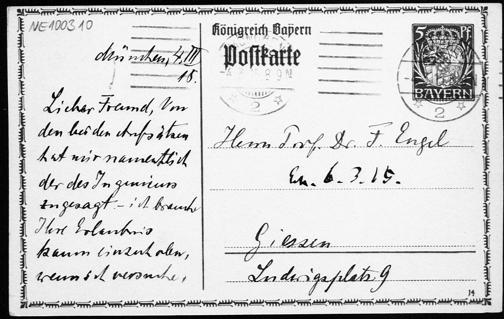 NE100310
Königreich Bayern
Postkarte
5 Pf
BAYERN
2
2
München, 4. III
15.
Lieber Freund, Von
den beiden Aufsätzen
hat mir namentlich
der des Ingenieurs
zugesagt – ich brauche
Ihre Erlaubnis
kaum einzuholen,
wenn ich versuche,
Herrn Prof. Dr. F. Engel
En. 6.3.15.
Giessen
Ludwigsplatz 9
14